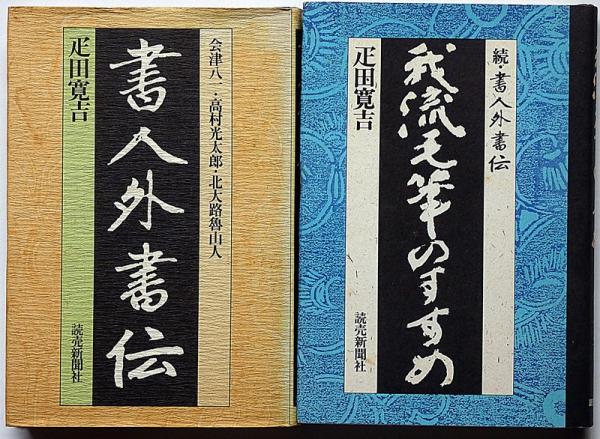 会津八一・高村光太郎・北大路魯山人
書人外書伝
疋田寛吉
読売新聞社
続・書人外書伝
我流毛筆のすすめ
疋田寛吉
読売新聞社